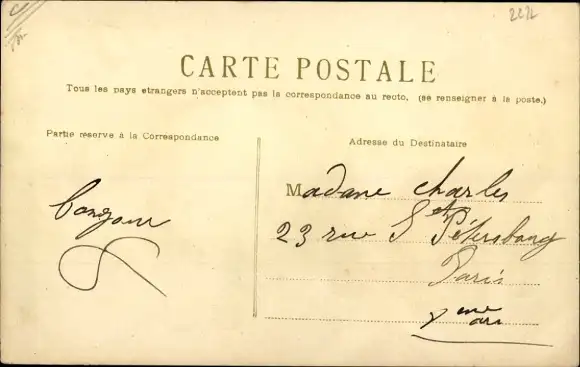 CARTE POSTALE
Tous les pays etrangers n'acceptent pas la correspondance au recto, (se renseigner à la poste.)
Partie reserve à la Correspondance
Adresse du Destinataire
Madame Charles
23 rue St Pétersbourg
Paris